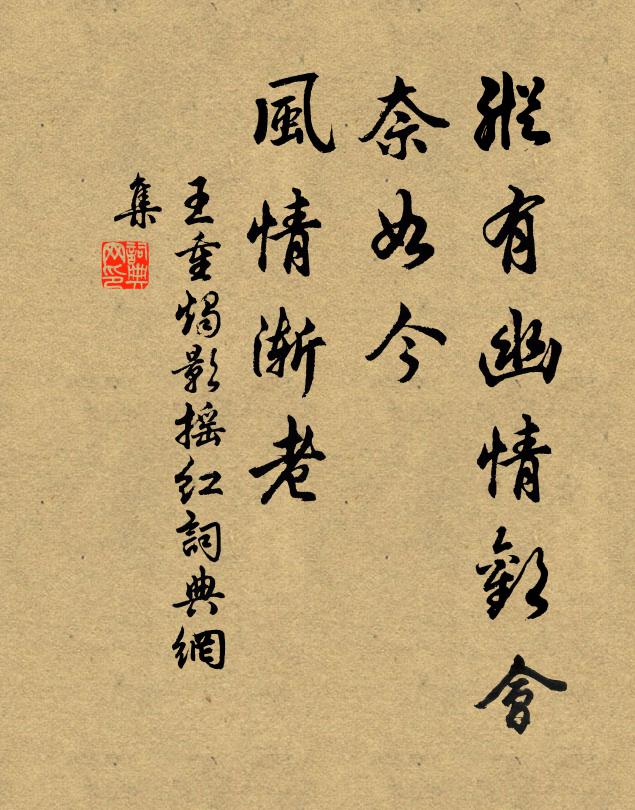 縱有幽情歡會
奈如今
風情漸老
王重燭影搖紅詞典網
集
詞典
网印